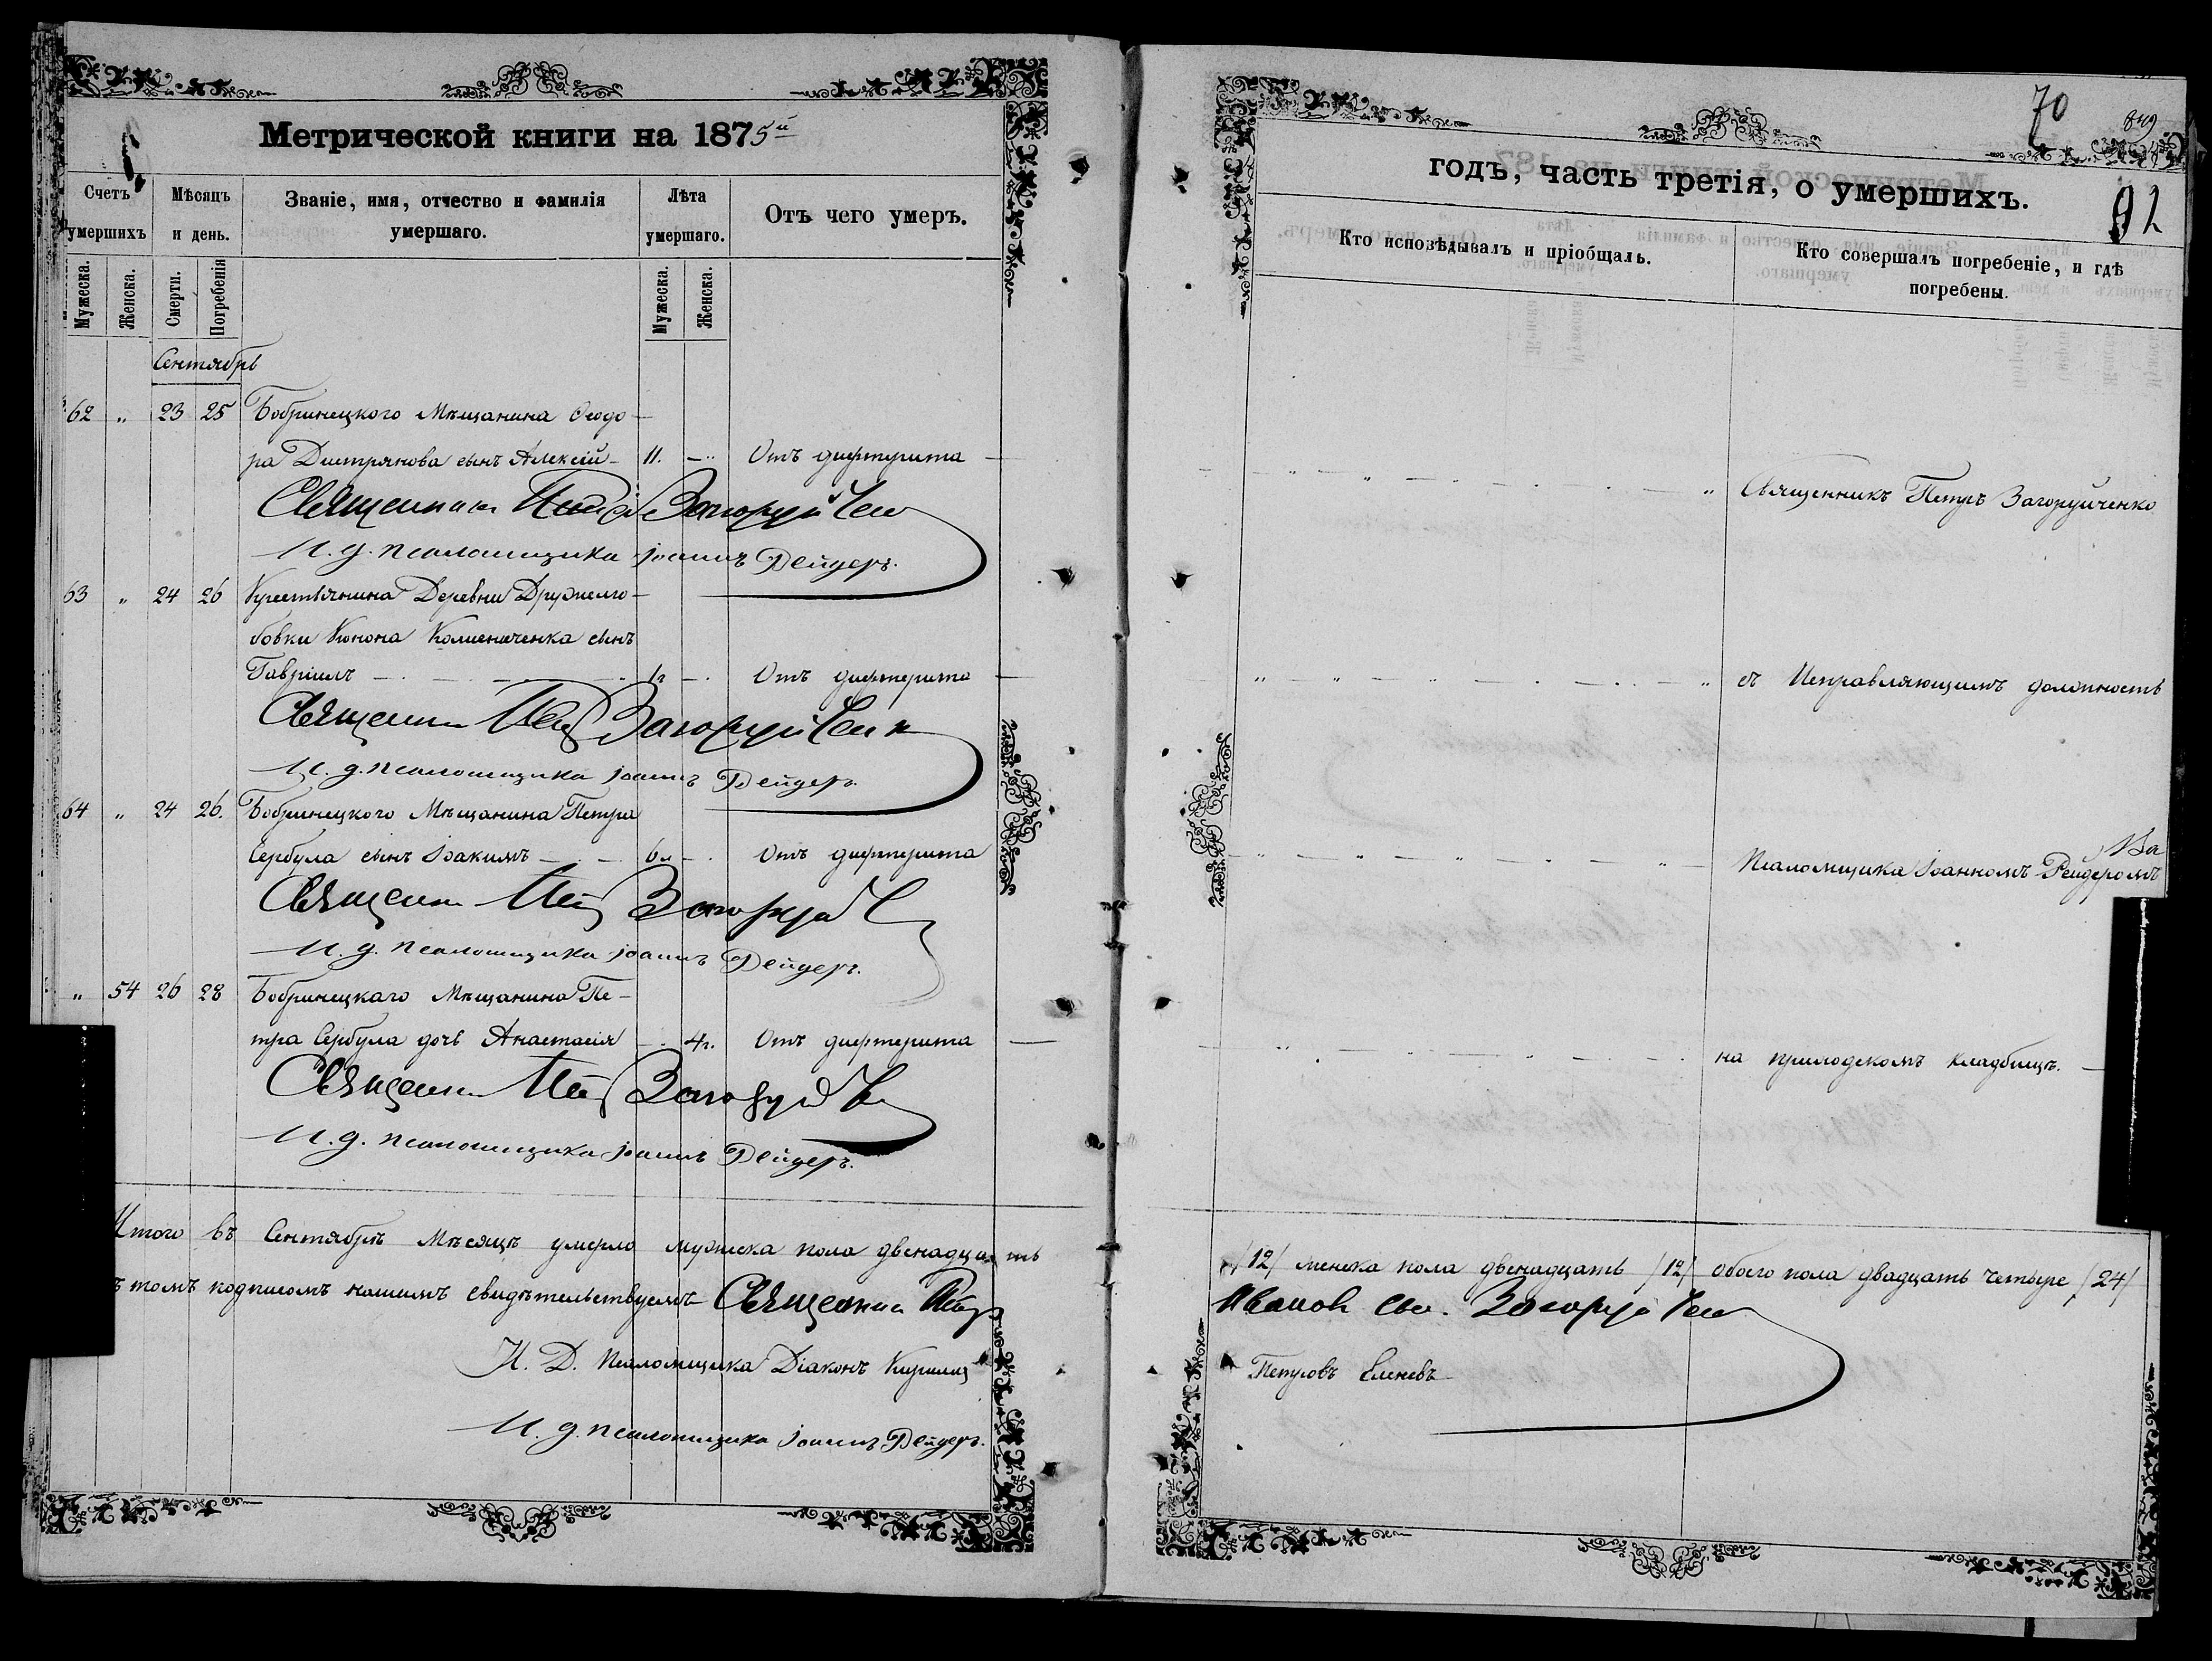 Метрической книги на 1875й
Счетъ умершихъ
Мѣсяцъ и день.
Званіе, имя, отчество и фамилія умершаго.
Лѣта умершаго.
Отъ чего умеръ.
Мужеска.
Женска.
Смерти.
Погребенія
Мужеска.
Женска.
Сентябрь
62 " 23 25 Бобринецкого Мѣщанина Ѳеодо-
ра Дмитрянова сынъ Алексій - 11. Отъ дифтерита
Священник Петр Загоруйченко
И. д. псаломщика Іоаннъ Рейдеръ.
63 " 24 26 Крестьянина Деревни Дружелю-
бовки Конона Коменюченка сынъ
Гавріилъ 1г Отъ дифтерита
Священник Петр Загоруйченк
И. д. псаломщика Іоаннъ Рейдеръ.
64 " 24 26. Бобринецкого Мѣщанина Петра
Сербула сынъ Іоакимъ 6л Отъ дифтерита
Священник Петр Загоруйч
И. д. псаломщика Іоаннъ Рейдеръ.
" 54 26 28 Бобринецкаго Мѣщанина Пе-
тра Сербула дочь Анастасія 4г. Отъ дифтерита
Священник Петр Загоруйч
И. д. псаломщика Іоаннъ Рейдеръ.
Итого въ Сентябрѣ Мѣсяцѣ умерло мужеска пола двенадцать
томъ подписомъ нашимъ свидѣтельствуемъ Священник Петр
И. Д. Псаломщика Діаконъ Кирилъ
И. д. псаломщика Іоаннъ Рейдеръ.
70
849
92
годъ, часть третія, о умершихъ.
Кто исповѣдывалъ и пріобщалъ.
Кто совершалъ погребеніе, и гдѣ погребены.
Священникъ Петръ Загоруйченко
съ Исправляющимъ должность
Псаломщика Іоанномъ Рейдеромъ
на приходскомъ кладбищѣ.
/12/ женска пола двенадцать /12/ обоего пола двадцать четыре /24/
Иванов сын. Загоруйчен
Петровъ Еленевъ